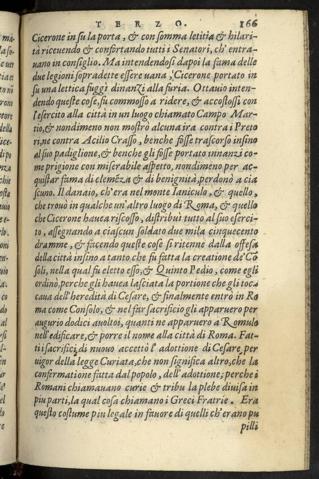 TERZO. 166
Cicerone in su la porta, & con somma letitia & hilari-
tà ricevendo & confortando tutti i Senatori, ch'entra-
uano in consiglio. Ma intendendosi dapoi la fama delle
due legioni sopradette essere uana, Cicerone portato in
su una lettica fuggi dinanzi alla furia. Ottauio inten-
dendo queste cose, fu commosso a ridere, & accostossi con
l'esercito alla città in un luogo chiamato Campo Mar-
tio, & nondimeno non mostrò alcuna ira contra i Preto
ri, ne contra Acilio Crasso, benche fosse trascorso insino
al suo padiglione, & benche gli fosse portato innanzi co-
me prigione con miserabile aspetto, nondimeno per ac-
quistar fama di clemēza & di benignità, perdonò a cia
scuno. Il danaio, ch'era nel monte Ianiculo, & quello,
che trouò in qualche un'altro luogo di Roma, & quello
che Cicerone hauea riscosso, distribuì tutto al suo eserci-
to, assegnando a ciascun soldato due mila cinquecento
dramme, & facendo queste cose si ritenne dalla offesa
della città insino a tanto che fu fatta la creatione de' Cō
soli, nella qual fu eletto esso, & Quinto Pedio, come egli
ordinò, perche gli hauea lasciata la portione che gli toca
caua dell'heredità di Cesare, & finalmente entrò in Ro
ma come Consolo, & nel far sacrificio gli apparuero per
augurio dodici auoltoi, quanti ne apparuero a Romulo
nell'edificare, & porre il nome alla città di Roma. Fat-
ti i sacrifici, di nuouo accettò l'adottione di Cesare per
uigor della legge Curiata, che non significa altro, che la
confirmatione fatta dal popolo, dell'adottione; perche i
Romani chiamauano curie & tribu la plebe diuisa in
piu parti, la qual cosa chiamano i Greci Fratrie. Era
questo costume piu legale in fauore di quelli ch'erano pu
pilli